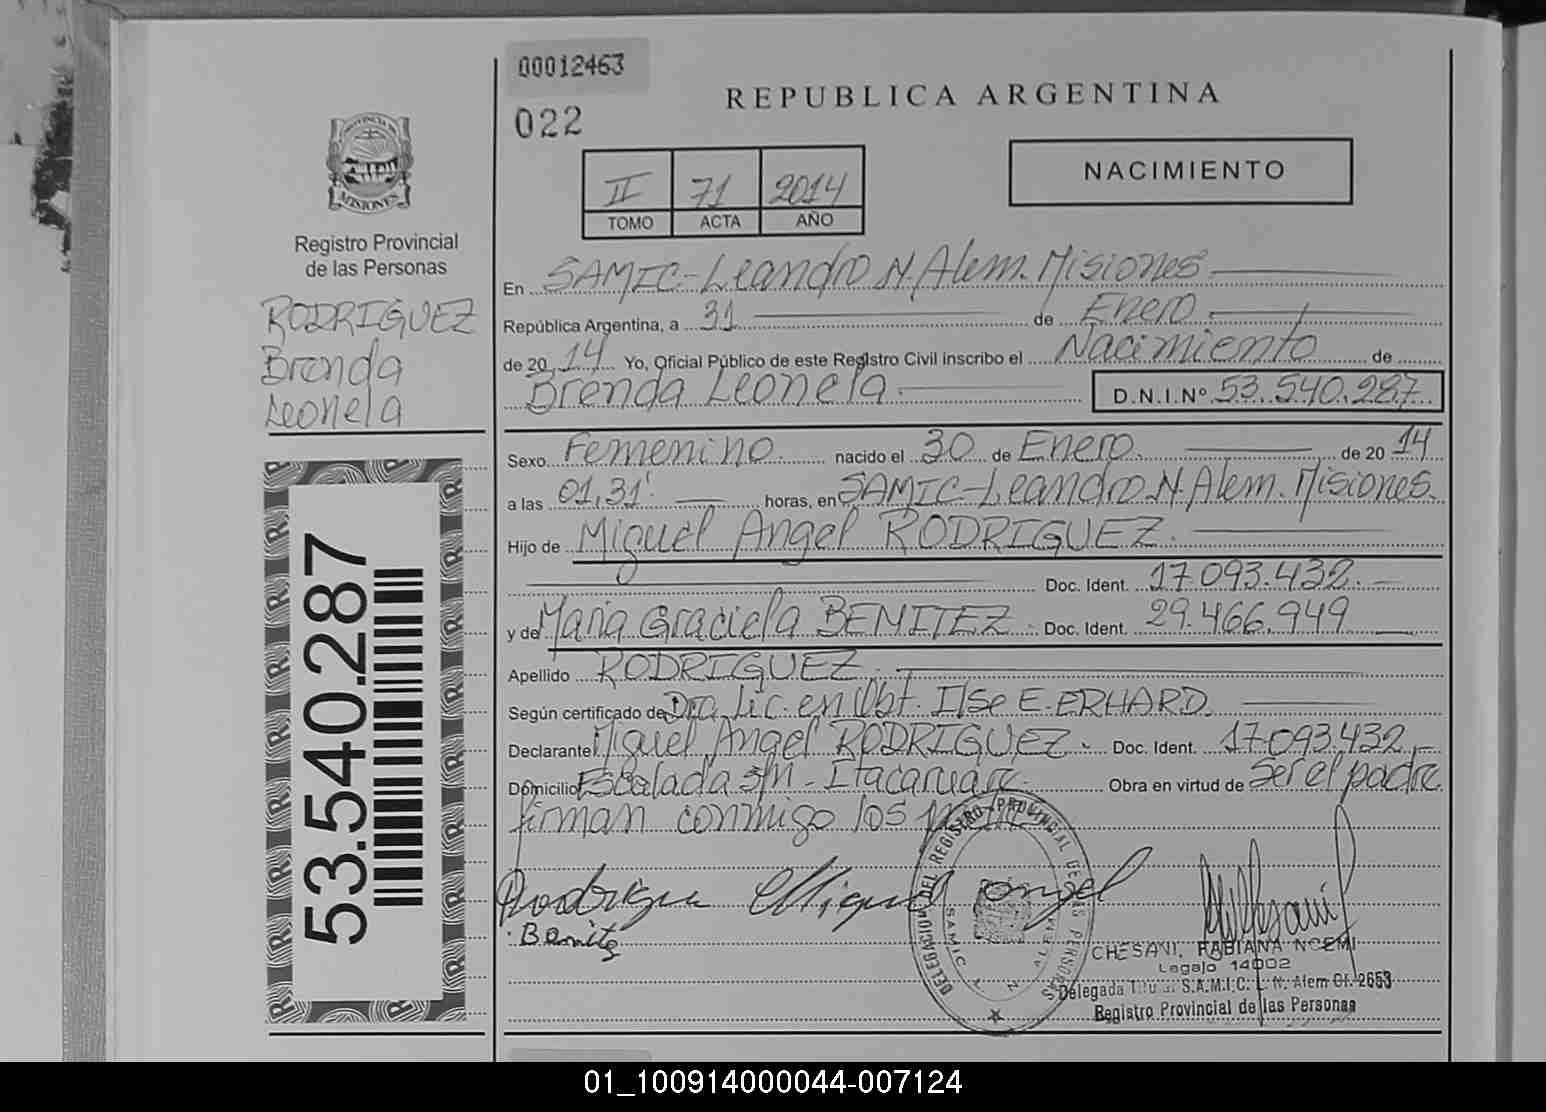 00012463
022
REPUBLICA ARGENTINA
NACIMIENTO
II 71 2014
TOMO ACTA AÑO
PROVINCIA DE
MISIONES
Registro Provincial
de las Personas
RODRIGUEZ
Brenda
Leonela
En SAMIC-Leandro N. Alem. Misiones
República Argentina, a 31 de Enero
de 2014 Yo, Oficial Público de este Registro Civil inscribo el Nacimiento de
Brenda Leonela. D.N.I.Nº 53.540.287
Sexo Femenino. nacido el 30 de Enero. de 2014
a las 01,31'. horas, en SAMIC-Leandro N. Alem. Misiones.
Hijo de Miguel Angel RODRIGUEZ.
Doc. Ident. 17.093.432.
y de Maria Graciela BENITEZ. Doc. Ident. 29.466.949
Apellido RODRIGUEZ.
Según certificado de Dra. Lic. en Obst. Ilse E. ERHARD.
Declarante Miguel Angel RODRIGUEZ. Doc. Ident. 17.093.432
Domicilio Escalada s/n - Itacaruare. Obra en virtud de ser el padre
firman conmigo los
Rodrigue Miguel Angel
Benitez
DELEGACION DEL REGISTRO PROVINCIAL DE LAS PERSONAS
SAMIC L. N. ALEM
CHESANI, FABIANA NOEMI
Legajo 14002
Delegada Titular S.A.M.I.C. L. N. Alem Of. 2653
Registro Provincial de las Personas
53.540.287
01_100914000044-007124